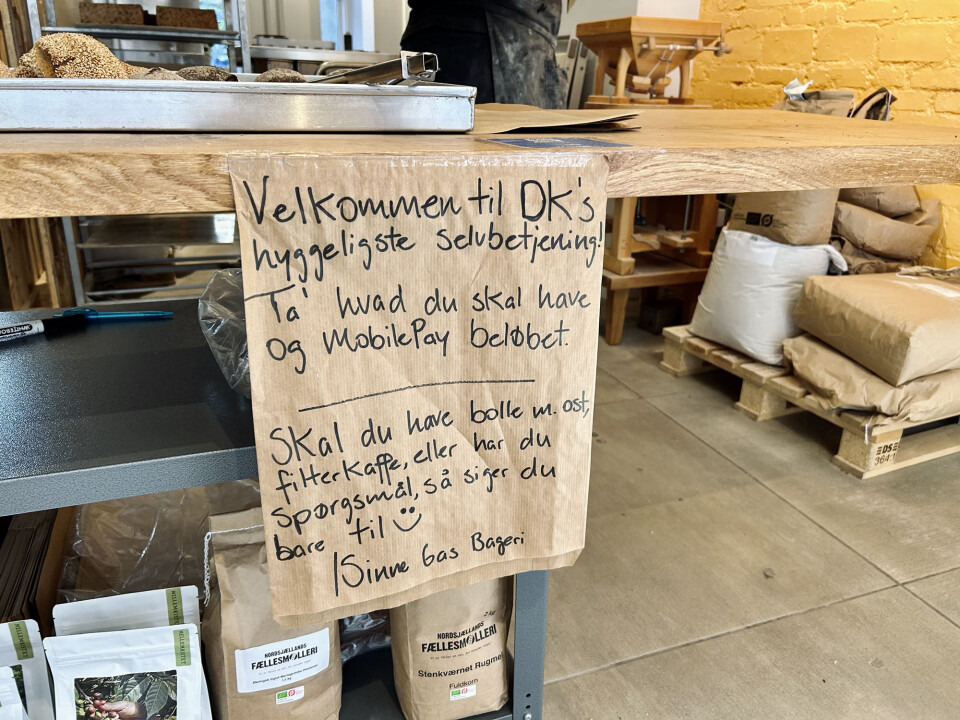 Velkommen til DK's
hyggeligste selvbetjening!
Ta' hvad du skal have
og MobilePay beløbet.
Skal du have bolle m. ost,
filterkaffe, eller har du
spørgsmål, så siger du
bare til
/Sinne Gas Bageri
NORDSJÆLLANDS
FÆLLESMØLLERI
2 kg
NORDSJÆLLANDS
FÆLLESMØLLERI
Stenkværnet Rugmel
Fuldkorn
DS